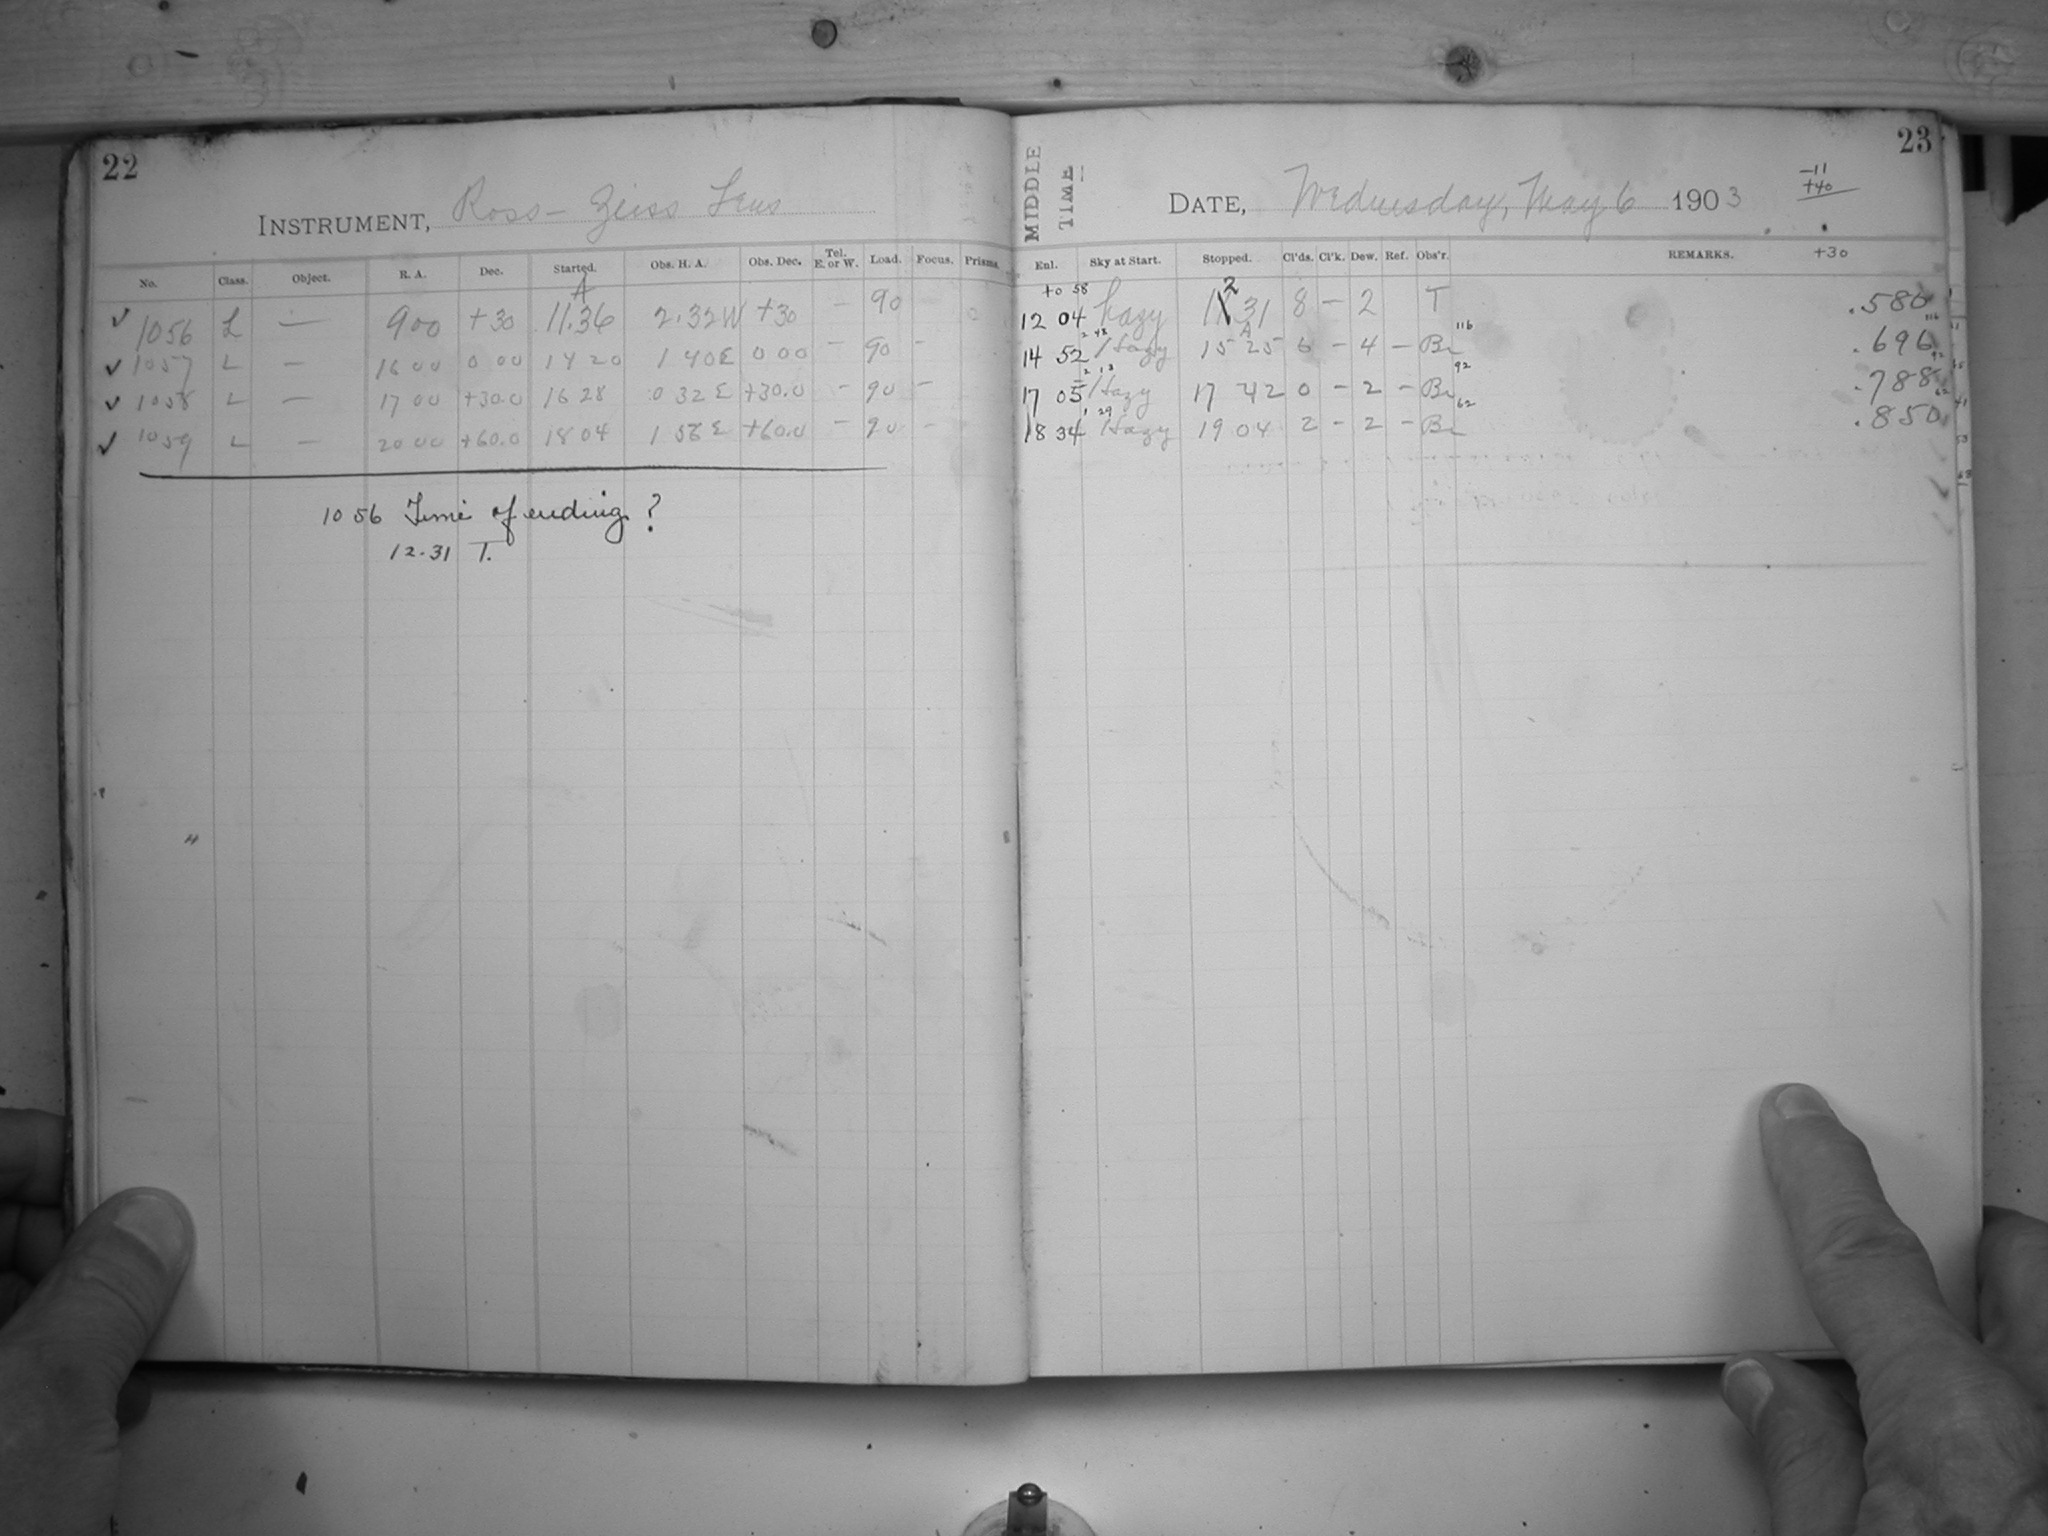 22
INSTRUMENT, Ross-Zeiss Lens
No. Class. Object. R. A. Dec. Started. Obs. H. A. Obs. Dec. Tel. E. or W. Load. Focus. Prisms.
A
✓ 1056 L — 900 +30 11.36 2.32W +30 — 90 —
✓ 1057 L — 16 00 0 00 14 20 1 40E 0 00 — 90 —
✓ 1058 L — 17 00 +30.0 16 28 0 32 E +30.0 — 90 —
✓ 1059 L — 20 00 +60.0 18 04 1 56 E +60.0 — 90 —
1056 Time of ending?
12.31 T.
23
MIDDLE TIME
DATE, Wednesday, May 6 1903
-11
+40
+30
Enl. Sky at Start. Stopped. Cl'ds. Cl'k. Dew. Ref. Obs'r. REMARKS.
+0 58
12 04 hazy 12 31 8 — 2 T .580
2 48
14 52 Hazy 15 25 6 — 4 — Br 116 .696 116
2 13
17 05 Hazy 17 42 0 — 2 — Br 92 .788 92
1 29
18 34 Hazy 19 04 2 — 2 — Br 62 .850 62